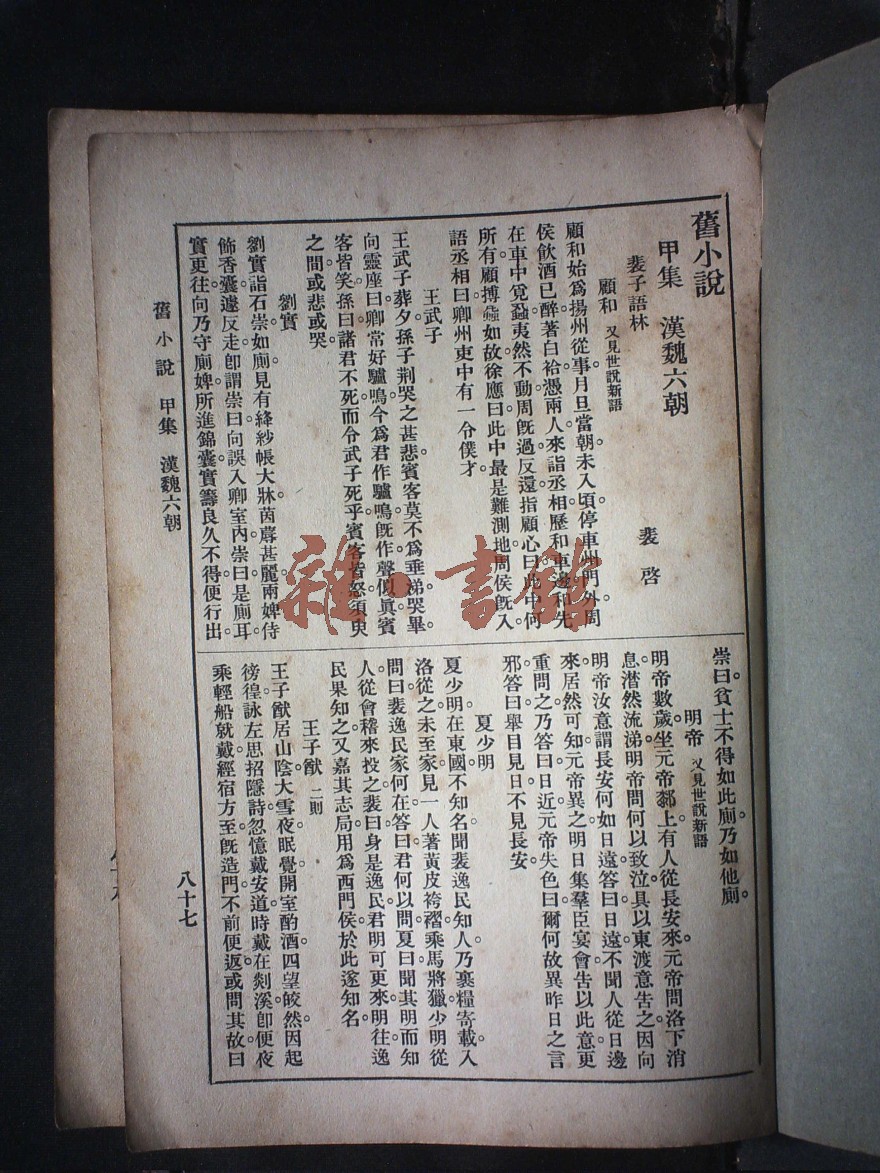 舊小說
甲集　漢魏六朝
裴子語林　裴啓
顧和　又見世說新語
顧和始爲揚州從事。月旦當朝。未入頃。停車州門外。周
侯飮酒已醉。著白袷。憑兩人來詣丞相。歷和車邊。和先
在車中覓蝨。夷然不動。周旣過。反還指顧心曰。此中何
所有。顧搏蝨如故。徐應曰。此中最是難測地。周侯旣入。
語丞相曰。卿州吏中有一令僕才。
王武子
王武子葬。夕孫子荆哭之甚悲。賓客莫不爲垂涕。哭畢。
向靈座曰。卿常好驢鳴。今爲君作驢鳴。旣作。聲似眞。賓
客皆笑。孫曰。諸君不死。而令武子死乎。賓客皆怒。須臾
之間。或悲或哭。
劉實
劉實詣石崇。如廁。見有絳紗帳大牀。茵蓐甚麗。兩婢侍
飾香囊。遽反走。卽謂崇曰。向誤入卿室內。崇曰。是廁耳。
實更往。向乃守廁婢。所進錦囊。實籌。良久不得。便行出。
崇曰。貧士不得如此廁。乃如他廁。
明帝　又見世說新語
明帝數歲。坐元帝郄上。有人從長安來。元帝問洛下消
息。潸然流涕。明帝問何以致泣。具以東渡意告之。因問
明帝。汝意謂長安何如日遠。答曰。日遠。不聞人從日邊
來。居然可知。元帝異之。明日。集羣臣宴會。告以此意。更
重問之。乃答曰。日近。元帝失色曰。爾何故異昨日之言
邪。答曰。舉目見日。不見長安。
夏少明
夏少明在東國。不知名。聞裴逸民知人。乃裹糧寄載。入
洛從之。未至家。見一人著黃皮袴褶。乘馬將獵。少明從
問曰。裴逸民家何在。答曰。君何以問。夏曰。聞其明而知
人。從會稽來投之。裴曰。身是逸民。君明可更來。明往。逸
民果知之。又嘉其志局。用爲西門侯。於此遂知名。
王子猷　二則
王子猷居山陰。大雪夜。眠覺。開室酌酒。四望皎然。因起
徬徨。詠左思招隱詩。忽憶戴安道。時戴在剡溪。卽便夜
乘輕船就戴。經宿方至。旣造門。不前便返。或問其故。曰
舊小說　甲集　漢魏六朝　八十七
雜·書館